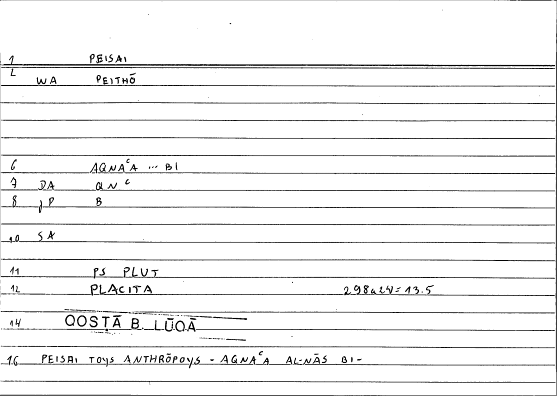 1 PEISAI
L WA PEITHŌ
6 AQNAᶜA ... BI
7 DA QNᶜ
8 jP B
10 SA
11 PS PLUT
12 PLACITA 298a24=13.5
14 QOSṬĀ B. LŪQĀ
16 PEISAI TOYS ANTHRŌPOYS - AQNAᶜA AL-NĀS BI-